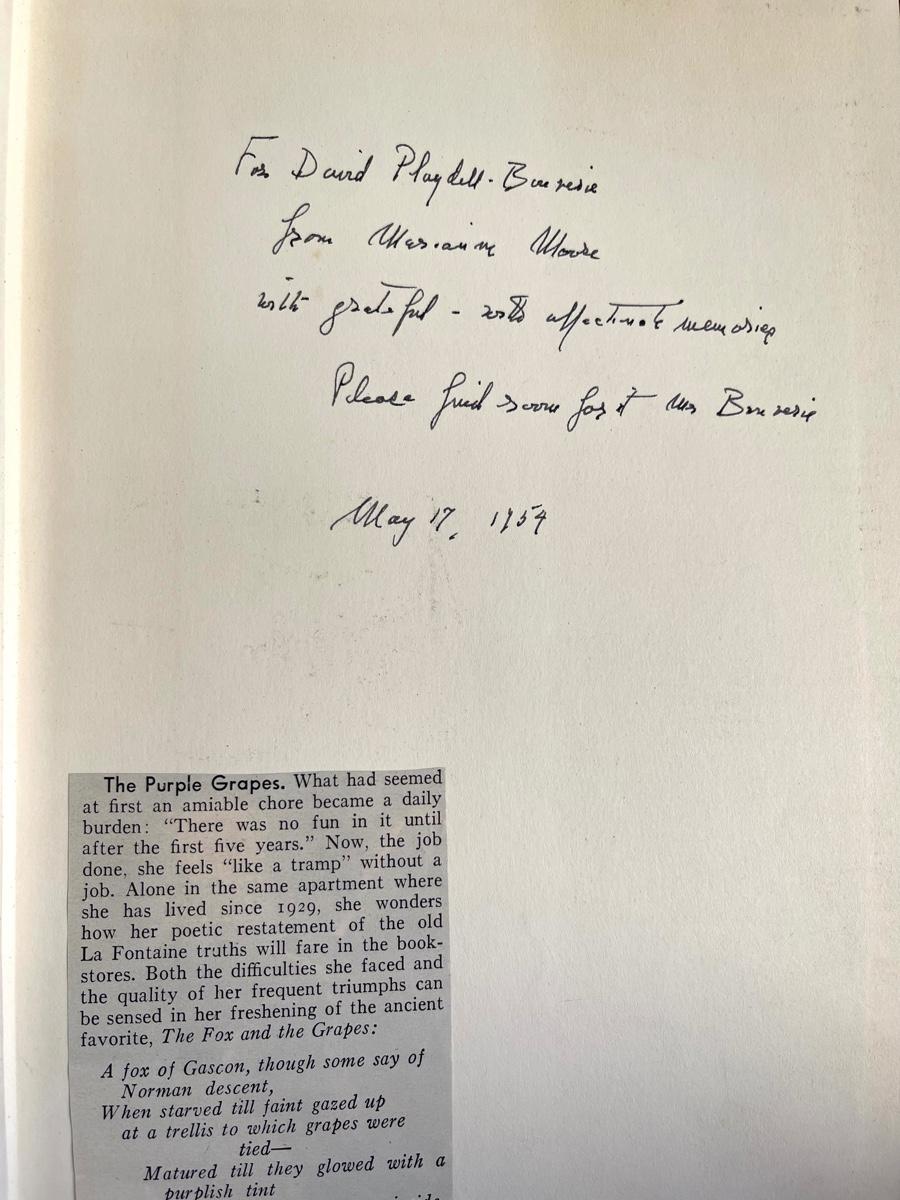 For David Playdell-Bouverie
from Marianne Moore
with grateful - with affectionate memories
Please find room for it Mr Bouverie
May 17, 1954
The Purple Grapes. What had seemed
at first an amiable chore became a daily
burden: “There was no fun in it until
after the first five years.” Now, the job
done, she feels “like a tramp” without a
job. Alone in the same apartment where
she has lived since 1929, she wonders
how her poetic restatement of the old
La Fontaine truths will fare in the book-
stores. Both the difficulties she faced and
the quality of her frequent triumphs can
be sensed in her freshening of the ancient
favorite, The Fox and the Grapes:
A fox of Gascon, though some say of
Norman descent,
When starved till faint gazed up
at a trellis to which grapes were
tied—
Matured till they glowed with a
purplish tint